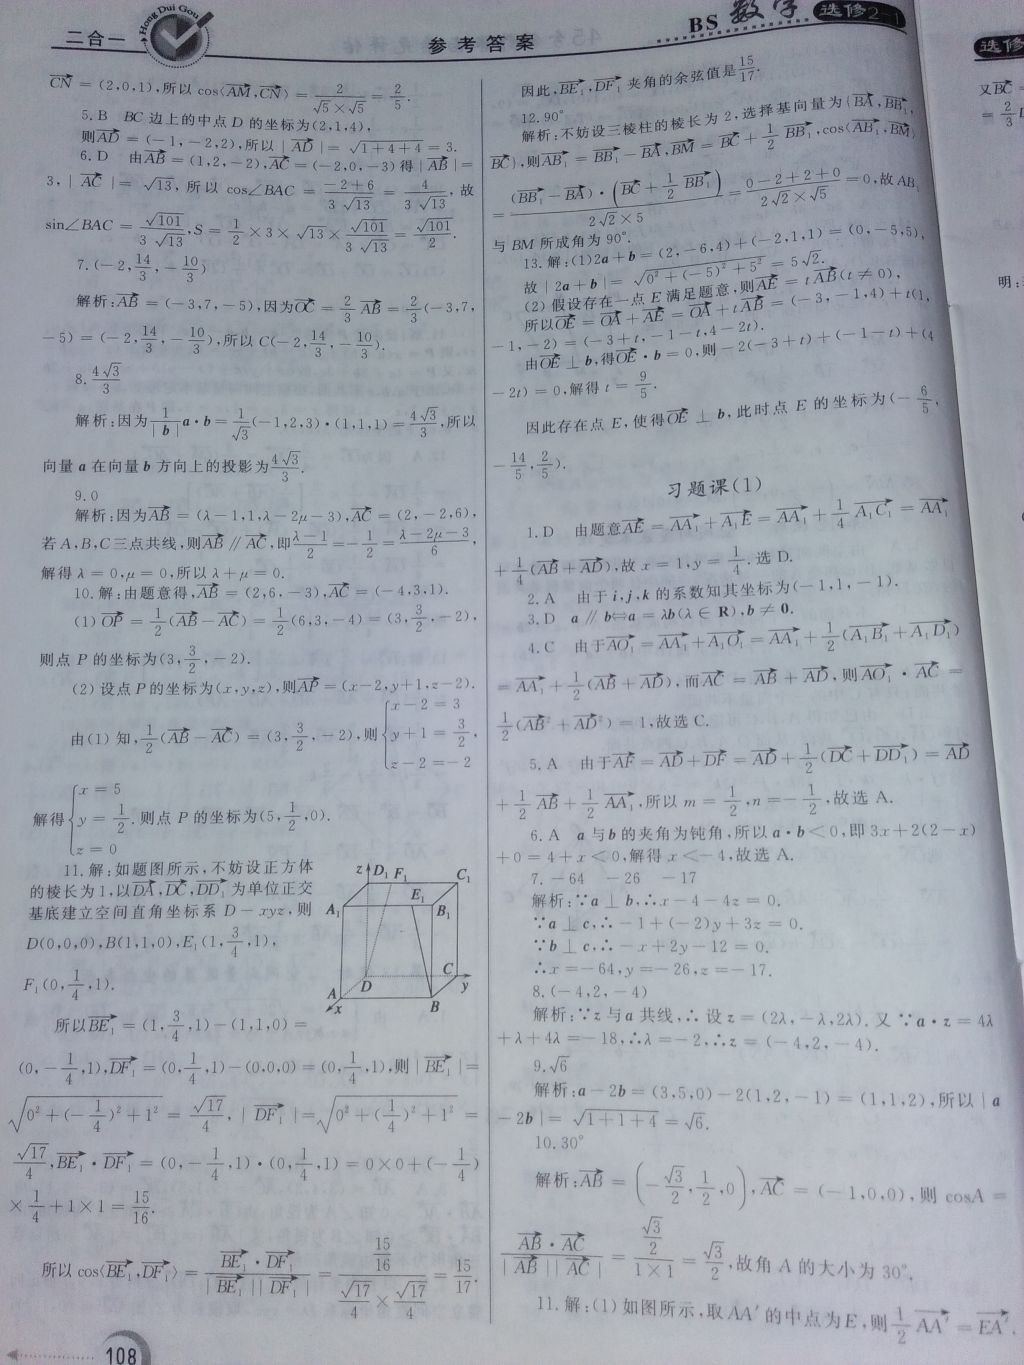 二合一
Hong Dui Gou
参考答案
BS 数学 选修2-1
CN = (2,0,1),所以 cos⟨AM,CN⟩ = 2/(√5×√5) = 2/5.
5. B BC 边上的中点 D 的坐标为(2,1,4),
则AD = (-1,-2,2),所以 |AD| = √(1+4+4) = 3.
6. D 由AB = (1,2,-2),AC = (-2,0,-3) 得 |AB| =
3,|AC| = √13,所以 cos∠BAC = (-2+6)/(3√13) = 4/(3√13),故
sin∠BAC = √101/(3√13),S = 1/2×3×√13×√101/(3√13) = √101/2.
7. (-2,14/3,-10/3)
解析:AB = (-3,7,-5),因为OC = 2/3 AB = 2/3(-3,7,
-5) = (-2,14/3,-10/3),所以 C(-2,14/3,-10/3).
8. 4√3/3
解析:因为 1/|b| a·b = 1/√3(-1,2,3)·(1,1,1) = 4√3/3,所以
向量 a 在向量 b 方向上的投影为4√3/3.
9. 0
解析:因为AB = (λ-1,1,λ-2μ-3),AC = (2,-2,6),
若 A,B,C三点共线,则AB ∥ AC,即(λ-1)/2 = -1/2 = (λ-2μ-3)/6,
解得 λ = 0,μ = 0,所以 λ+μ = 0.
10. 解:由题意得,AB = (2,6,-3),AC = (-4,3,1).
(1) OP = 1/2(AB-AC) = 1/2(6,3,-4) = (3,3/2,-2),
则点 P 的坐标为(3,3/2,-2).
(2) 设点 P 的坐标为(x,y,z),则AP = (x-2,y+1,z-2).
由(1) 知,1/2(AB-AC) = (3,3/2,-2),则{x-2=3
y+1=3/2,
z-2=-2
解得{x=5
y=1/2. 则点 P 的坐标为(5,1/2,0).
z=0
11. 解:如题图所示,不妨设正方体
的棱长为 1,以DA,DC,DD₁为单位正交
基底建立空间直角坐标系 D-xyz,则
D(0,0,0),B(1,1,0),E₁(1,3/4,1),
F₁(0,1/4,1).
z D₁ F₁ C₁
E₁
A₁ B₁
D C
y
A
x B
所以BE₁ = (1,3/4,1)-(1,1,0) =
(0,-1/4,1),DF₁ = (0,1/4,1)-(0,0,0) = (0,1/4,1),则 |BE₁| =
√(0²+(-1/4)²+1²) = √17/4,|DF₁| = √(0²+(1/4)²+1²) =
√17/4,BE₁·DF₁ = (0,-1/4,1)·(0,1/4,1) = 0×0+(-1/4)
×1/4+1×1 = 15/16.
所以 cos⟨BE₁,DF₁⟩ = BE₁·DF₁/(|BE₁||DF₁|) = (15/16)/(√17/4×√17/4) = 15/17.
108
因此,BE₁,DF₁ 夹角的余弦值是15/17.
12. 90°
解析:不妨设三棱柱的棱长为 2,选择基向量为{BA,BB₁,
BC},则AB₁ = BB₁-BA,BM = BC+1/2 BB₁,cos⟨AB₁,BM⟩
= (BB₁-BA)·(BC+1/2 BB₁)/(2√2×5) = (0-2+2+0)/(2√2×√5) = 0,故 AB₁
与 BM 所成角为 90°.
13. 解:(1)2a+b = (2,-6,4)+(-2,1,1) = (0,-5,5),
故 |2a+b| = √(0²+(-5)²+5²) = 5√2.
(2) 假设存在一点 E 满足题意,则AE = tAB(t≠0),
所以OE = OA+AE = OA+tAB = (-3,-1,4)+t(1,
-1,-2) = (-3+t,-1-t,4-2t).
由OE ⊥ b,得OE·b = 0,则 -2(-3+t)+(-1-t)+(4
-2t) = 0,解得 t = 9/5.
因此存在点 E,使得OE ⊥ b,此时点 E 的坐标为(-6/5,
-14/5,2/5).
习题课(1)
1. D 由题意AE = AA₁+A₁E = AA₁+1/4 A₁C₁ = AA₁
+1/4(AB+AD),故 x = 1,y = 1/4. 选 D.
2. A 由于 i,j,k 的系数知其坐标为(-1,1,-1).
3. D a∥b⇔a = λb(λ∈R),b≠0.
4. C 由于AO₁ = AA₁+A₁O₁ = AA₁+1/2(A₁B₁+A₁D₁)
= AA₁+1/2(AB+AD),而AC = AB+AD,则AO₁·AC =
1/2(AB²+AD²) = 1,故选 C.
5. A 由于AF = AD+DF = AD+1/2(DC+DD₁) = AD
+1/2 AB+1/2 AA₁,所以 m = 1/2,n = -1/2,故选 A.
6. A a 与 b 的夹角为钝角,所以 a·b<0,即 3x+2(2-x)
+0 = 4+x<0,解得 x<-4,故选 A.
7. -64 -26 -17
解析:∵a⊥b,∴x-4-4z = 0.
∵a⊥c,∴-1+(-2)y+3z = 0.
∵b⊥c,∴-x+2y-12 = 0.
∴x = -64,y = -26,z = -17.
8. (-4,2,-4)
解析:∵z 与 a 共线,∴设 z = (2λ,-λ,2λ). 又∵a·z = 4λ
+λ+4λ = -18,∴λ = -2,∴z = (-4,2,-4).
9. √6
解析:a-2b = (3,5,0)-2(1,2,-1) = (1,1,2),所以 |a
-2b| = √(1+1+4) = √6.
10. 30°
解析:AB = (-√3/2,1/2,0),AC = (-1,0,0),则 cosA =
AB·AC/(|AB||AC|) = (√3/2)/(1×1) = √3/2,故角 A 的大小为 30°.
11. 解:(1)如图所示,取AA′的中点为E,则1/2 AA′ = EA′.
选修
又BC =
= 2/3
明: